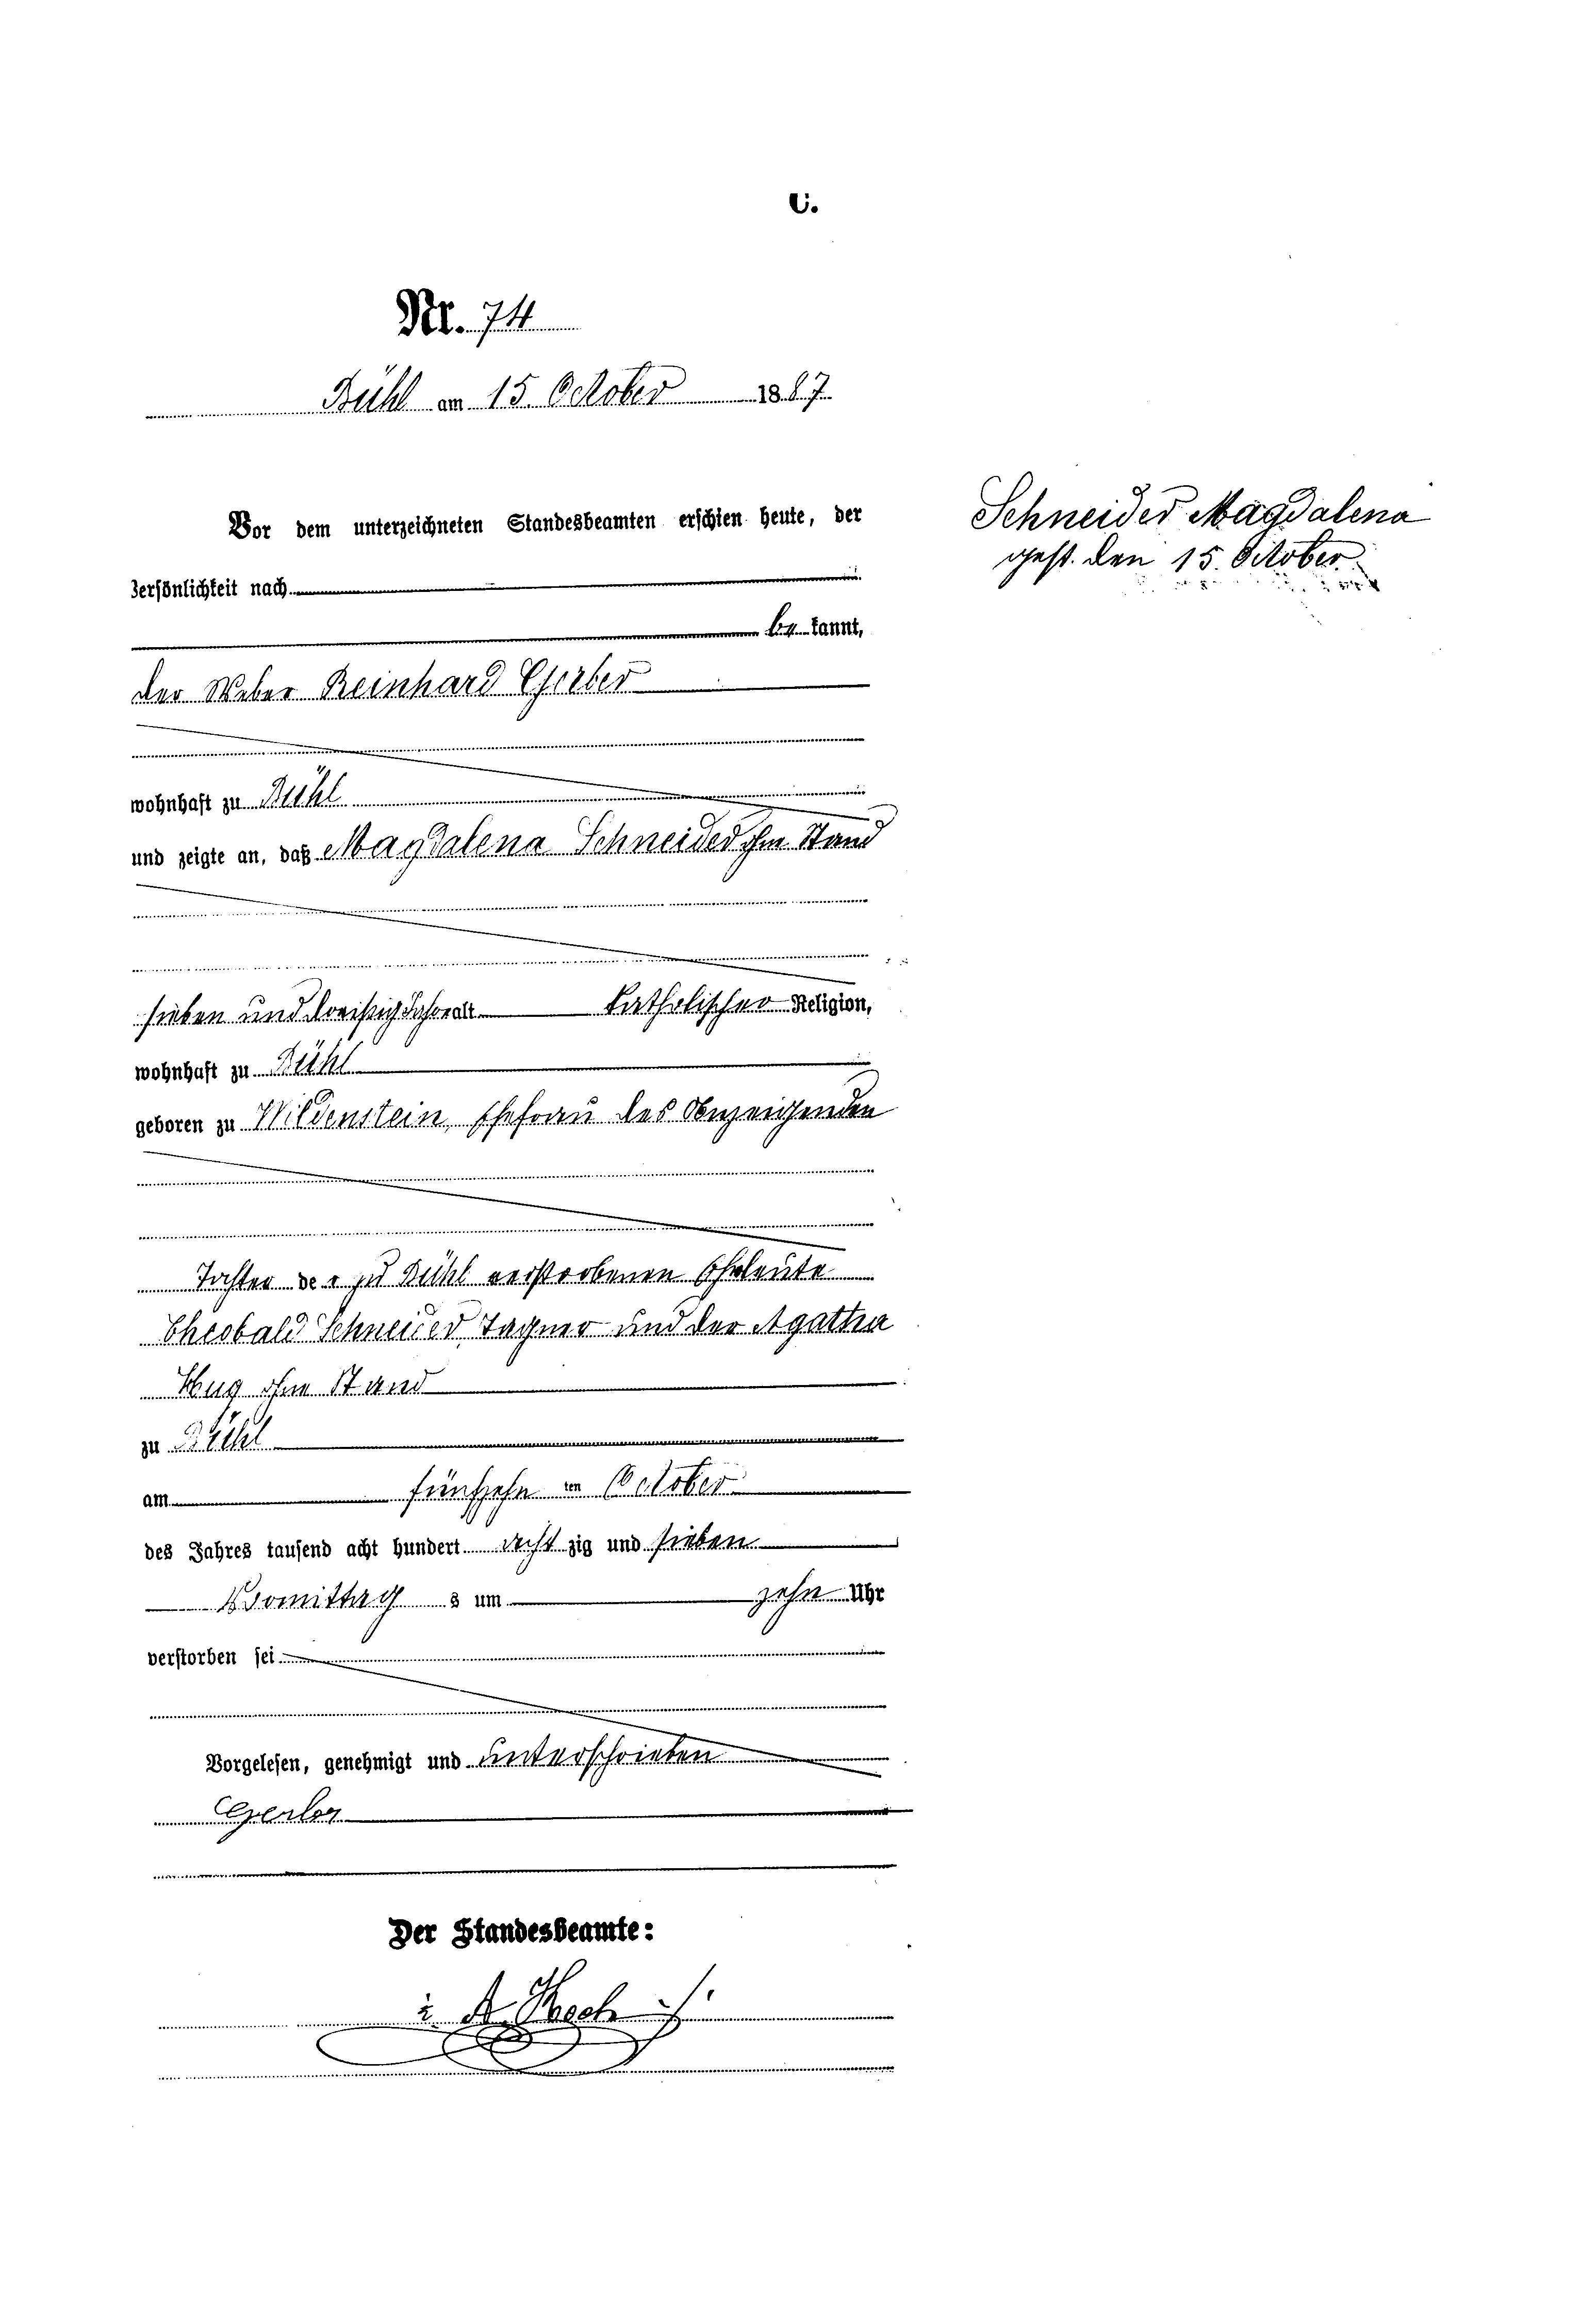 C.
Nr. 74
Bühl am 15. October 1887
Schneider Magdalena
gest. den 15. October
Vor dem unterzeichneten Standesbeamten erschien heute, der
Persönlichkeit nach
be kannt,
der Weber Reinhard Gerber
wohnhaft zu Bühl
und zeigte an, daß Magdalena Schneider ohne Stand
sieben und dreißig Jahre alt katholischer Religion,
wohnhaft zu Bühl
geboren zu Wildenstein, Ehefrau des Anzeigenden
Tochter de r zu Bühl verstorbenen Eheleute
Theobald Schneider, Tagner und der Agatha
Hug ohne Stand
zu Bühl
am fünfzehn ten October
des Jahres tausend acht hundert acht zig und sieben
Vormittag s um zehn Uhr
verstorben sei
Vorgelesen, genehmigt und unterschrieben
Gerber
Der Standesbeamte:
A. Koch